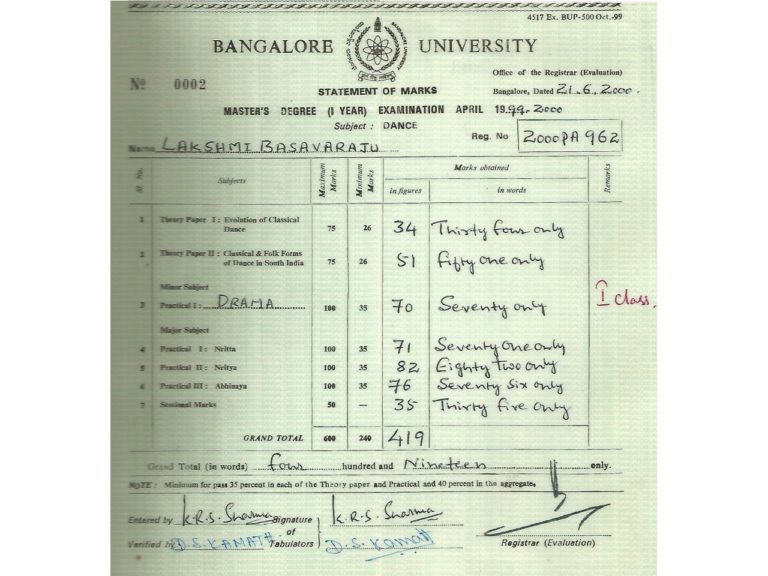 4517 Ex. BUP-500 Oct.-99
BANGALORE UNIVERSITY
Office of the Registrar (Evaluation)
No 0002
STATEMENT OF MARKS
Bangalore, Dated 21.6.2000.
MASTER'S DEGREE (I YEAR) EXAMINATION APRIL 1999-2000
Subject : DANCE
Reg. No 2000PA962
Name LAKSHMI BASAVARAJU
Sl. No. Subjects Maximum Marks Minimum Marks Marks obtained Remarks
in figures in words
1 Theory Paper I : Evolution of Classical Dance 75 26 34 Thirty four only
2 Theory Paper II : Classical & Folk Forms of Dance in South India 75 26 51 Fifty one only
Minor Subject
3 Practical I : DRAMA 100 35 70 Seventy only I class.
Major Subject
4 Practical I : Nritta 100 35 71 Seventy One only
5 Practical II : Nritya 100 35 82 Eighty Two only
6 Practical III : Abhinaya 100 35 76 Seventy Six only
7 Sessional Marks 50 — 35 Thirty five only
GRAND TOTAL 600 240 419
Grand Total (in words) four hundred and Nineteen only.
NOTE : Minimum for pass 35 percent in each of the Theory paper and Practical and 40 percent in the aggregate.
Entered by K.R.S. Sharma Signature of Tabulators K.R.S. Sharma
Verified by D.S. KAMATH. D.S. Kamath
Registrar (Evaluation)